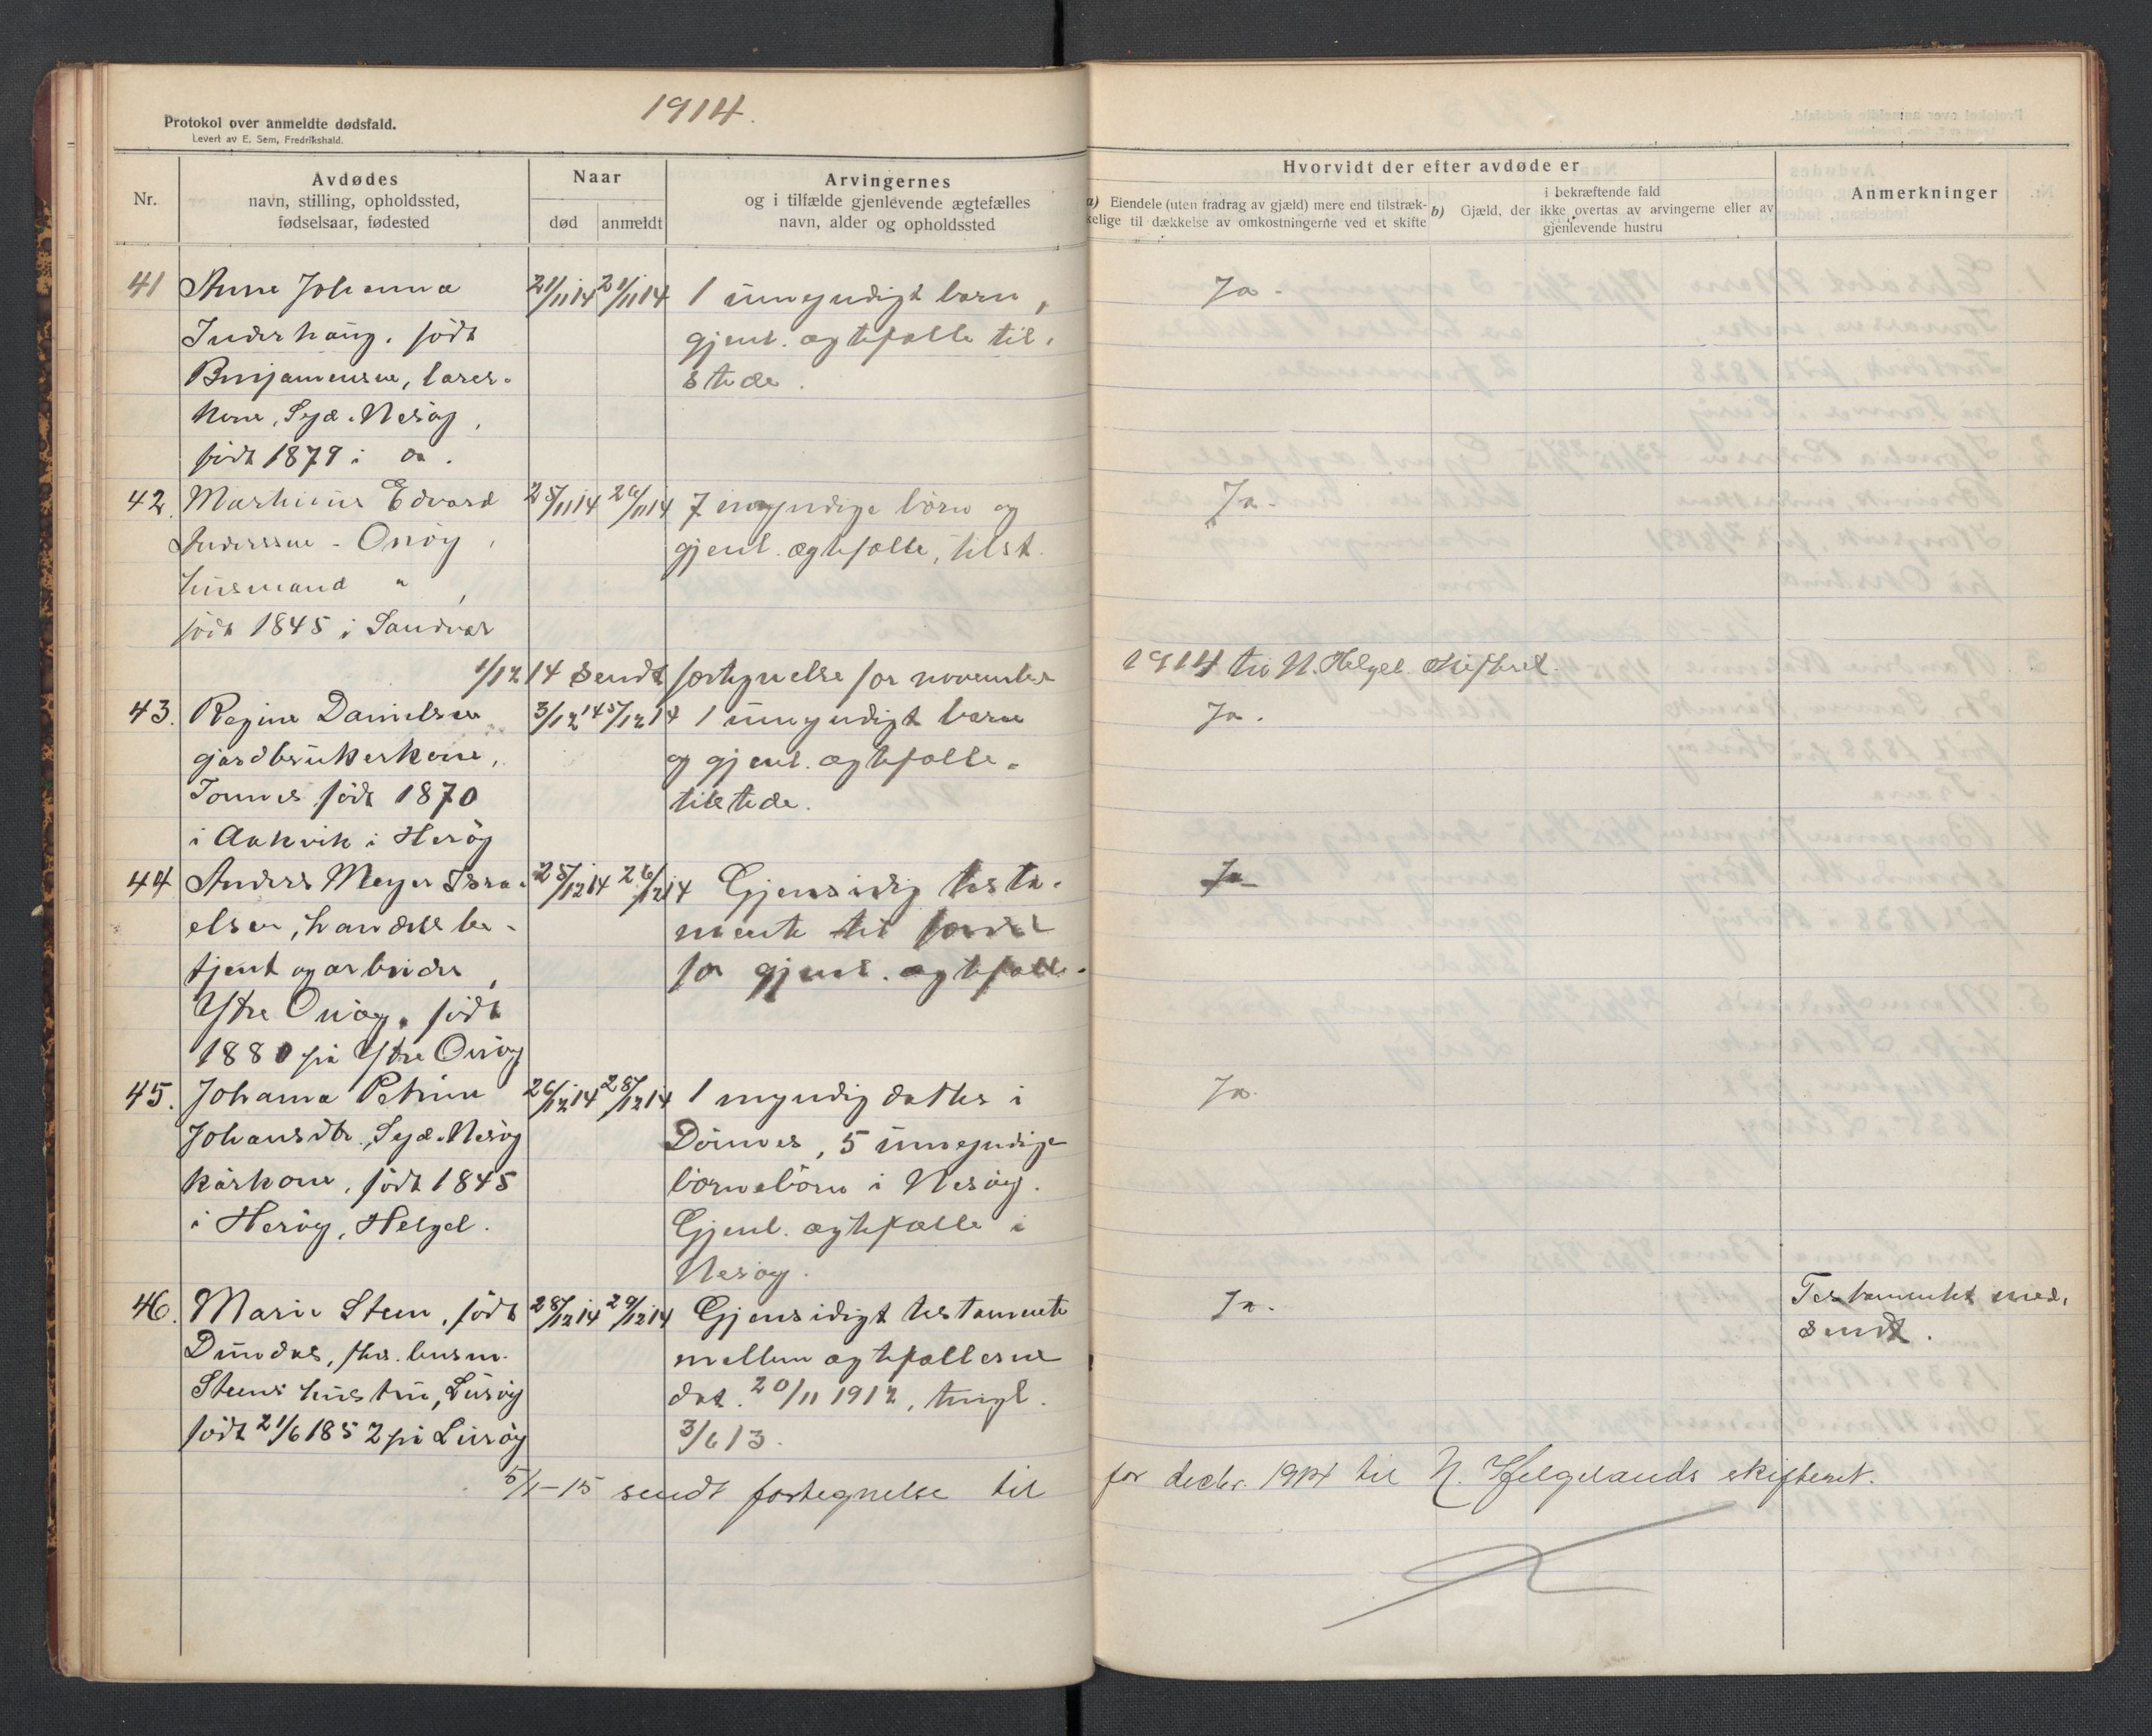 1914.
Protokol over anmeldte dødsfald.
Levert av E. Sem, Fredrikshald.
Nr.
Avdødes
navn, stilling, opholdssted,
fødselsaar, fødested
Naar
død
anmeldt
Arvingernes
og i tilfælde gjenlevende ægtefælles
navn, alder og opholdssted
Hvorvidt der efter avdøde er
a) Eiendele (uten fradrag av gjæld) mere end tilstræk-
kelige til dækkelse av omkostningerne ved et skifte
i bekræftende fald
b) Gjæld, der ikke overtas av arvingerne eller av
gjenlevende hustru
Anmerkninger
41 Anne Johanna 21/11 14 21/11 14 1 umyndigt barn, Ja.
Inderhaug. født gjenl. ægtefælle til.
Benjaminsen, lærer- stede.
kone, Syd-Nesøy,
født 1879 i do.
42. Marthinus Edvard 25/11 14 26/11 14 7 myndige børn og Ja.
Anderssen - Onøy, gjenl. ægtefælle, tilst.
husmand " ,
født 1845 i Sandvær
1/12 14 sendt fortegnelse for november 1914 til N. Helgel. skifteret.
43. Regine Danielsen 3/12 14 5/12 14 1 umyndigt barn Ja.
gårdbrukerkone, og gjenl. ægtefælle.
Tonnes født 1870 tilstede.
i Aakvik i Herøy
44 Anders Meyer Isra- 25/12 14 26/12 14 Gjensidig testa- Ja
elsen, handelsbe- mente til fordel
tjent og arbeider, for gjenl. ægtefælle.
Ytre Onøy, født
1880 på Ytre Onøy
45. Johanna Petrine 26/12 14 28/12 14 1 myndig datter i Ja.
Johansdtr., Syd-Nesøy Dønnes, 5 umyndige
kårkone, født 1845 børnebørn i Nesøy.
i Herøy, Helgel. Gjenl. ægtefælle i
Nesøy.
46. Marie Steen, født 28/12 14 29/12 14 Gjensidigt testamente Ja. Testamentet med.
Dundas, fhv. husm. mellem ægtefællerne sendt.
Steens hustru, Lurøy dat. 20/11 1912, tingl.
født 21/6 1852 på Lurøy 3/6 13.
5/1-15 sendt fortegnelse til for decbr. 1914 til N. Helgelands skifteret.